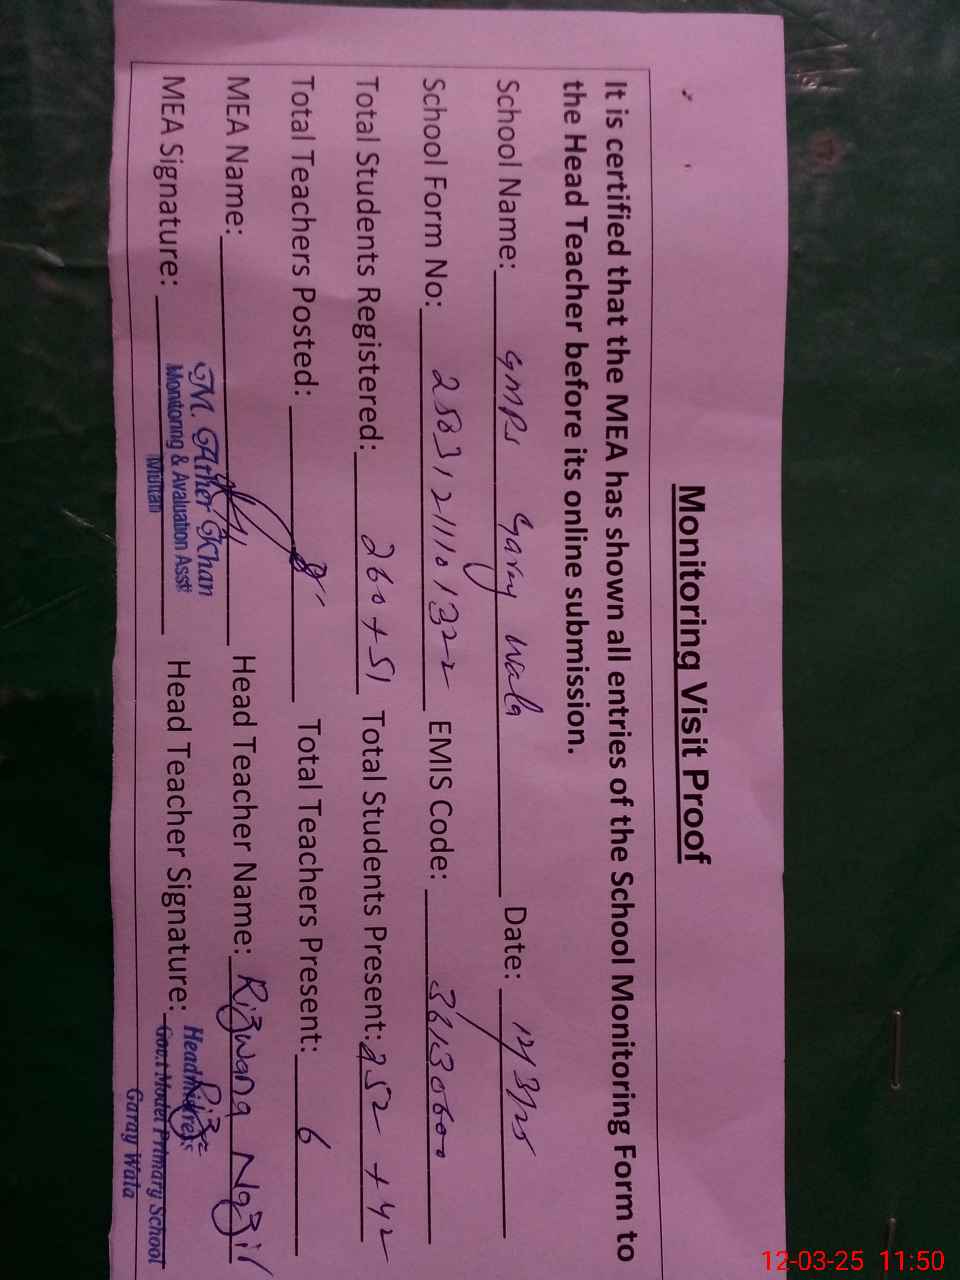 Monitoring Visit Proof
It is certified that the MEA has shown all entries of the School Monitoring Form to
the Head Teacher before its online submission.
School Name: GMPS Garay Wala Date: 12/3/25
School Form No: 25831211101322 EMIS Code: 36130600
Total Students Registered: 260+51 Total Students Present: 252+42
Total Teachers Posted: 8 Total Teachers Present: 6
MEA Name: Head Teacher Name: Rizwana Nazir
M. Ather Khan
MEA Signature: Head Teacher Signature:
Monitoring & Avaluation Asstt
Multan
Headmistress
Govt Model Primary School
Garay Wala
12-03-25 11:50